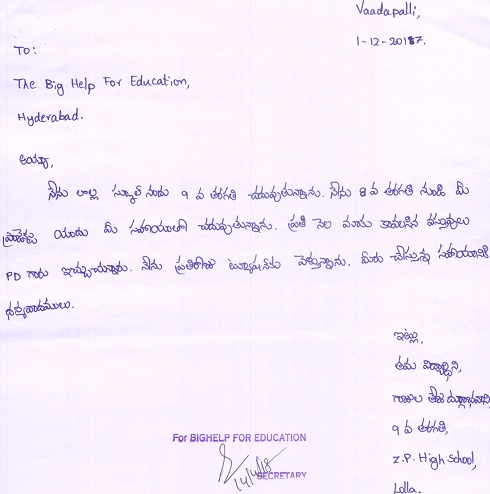 Vaadapalli,
1-12-2017.
To:
The Big Help For Education,
Hyderabad.
అయ్యా,
నేను లొల్ల స్కూల్ నందు 9 వ తరగతి చదువుతున్నాను. నేను 8 వ తరగతి నుండి మీ
యందు మీ సహాయంతో చదువుతున్నాను. ప్రతి నెల మాకు కావలసిన వస్తువులు
PD గారు ఇచ్చుచున్నారు. నేను ప్రతిరోజు ట్యూషన్‌కు వెళ్తున్నాను. మీరు చేస్తున్న సహాయానికి
ధన్యవాదములు.
ఇట్లు,
తమ విద్యార్థిని,
9 వ తరగతి,
Z.P. High School,
Lolla.
For BIGHELP FOR EDUCATION
14/4/18
SECRETARY